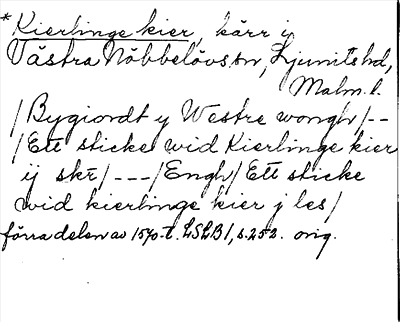 *Kierlinge kier, kärr i
Västra Nöbbelövs sn, Ljunits hd,
Malm. l.
/Bygiordt y Westre wongh/--
/Ett sticke wid Kierlinge kier
ij skr̄/---/Engh/Ett sticke
wid kierlinge kier j les/
förra delen av 1570-t. LSLB1, s.252. orig.